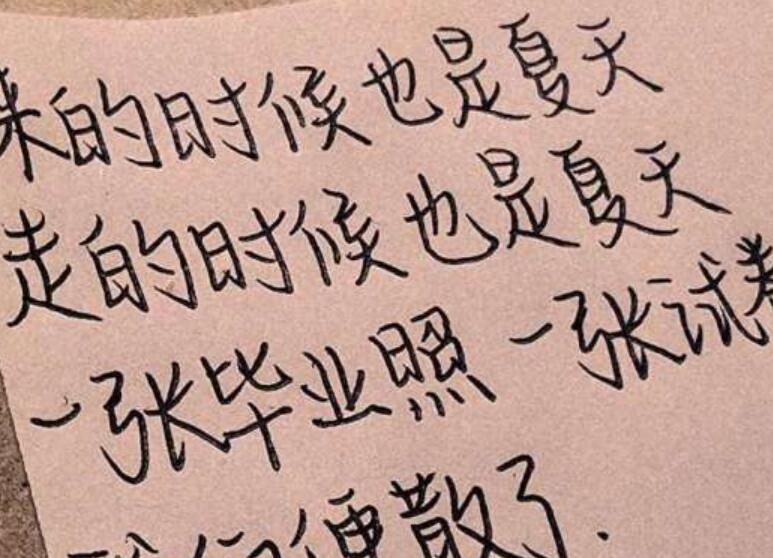 来的时候也是夏天
走的时候也是夏天
一张毕业照一张试卷
我们便散了.